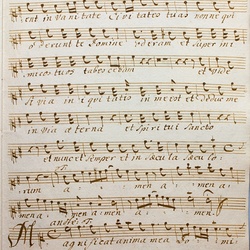 ent in vanitate Civitates tuas nonne qui
oderunt te Domine oderam et super ini
micos tuos tabescebam et vide
si via iniquitatis in me est et deduc me
in via æterna et Spiritui Sancto
et nunc et semper et in sæcula sæculo-
rum a- men a- men a-
men a- men a- men.
Andante
Magnificat anima mea Do- mi-